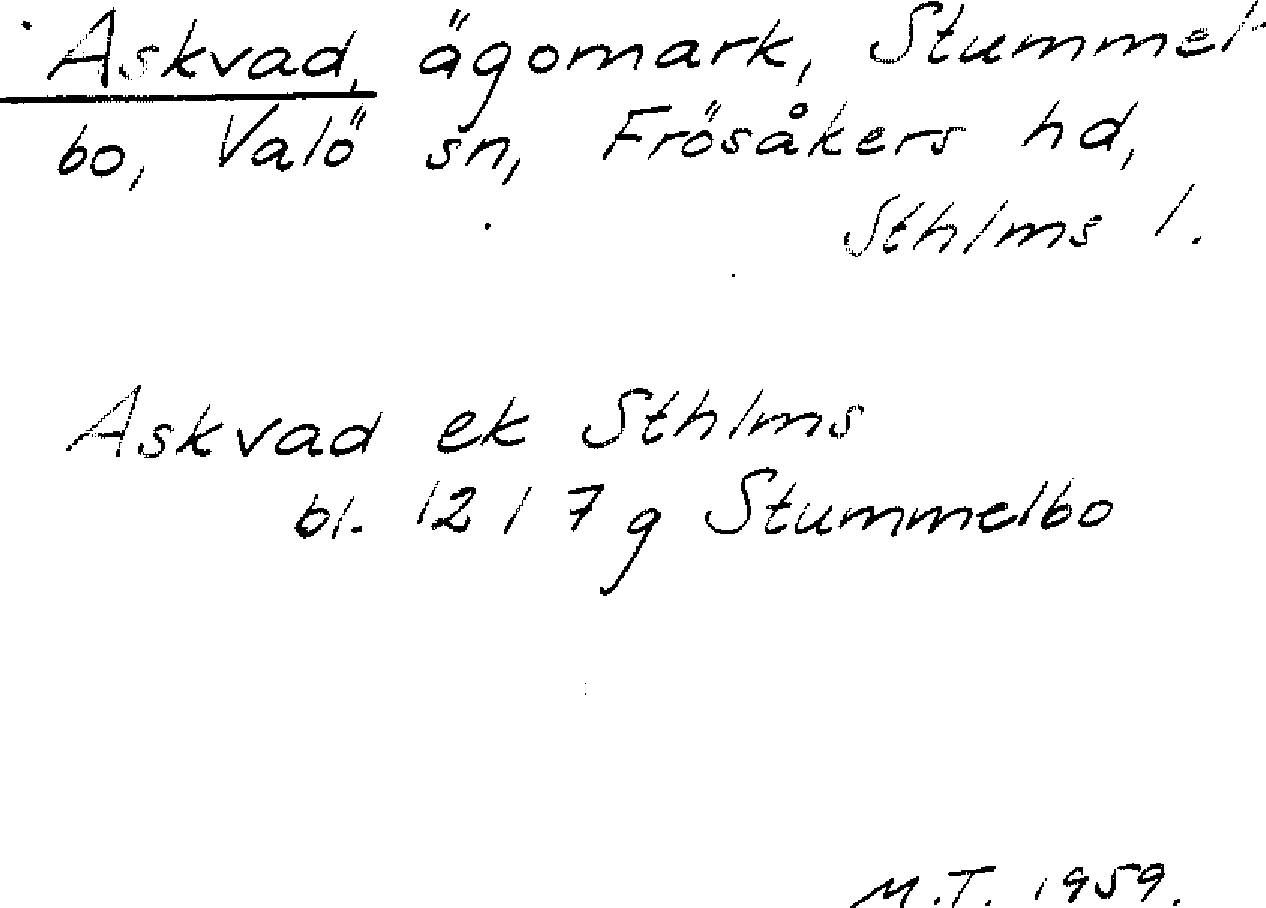 Askvad, ägomark, Stummel-
bo, Valö sn, Frösåkers hd,
Sthlms l.
Askvad ek Sthlms
bl. 12 I 7 g Stummelbo
M.T. 1959.